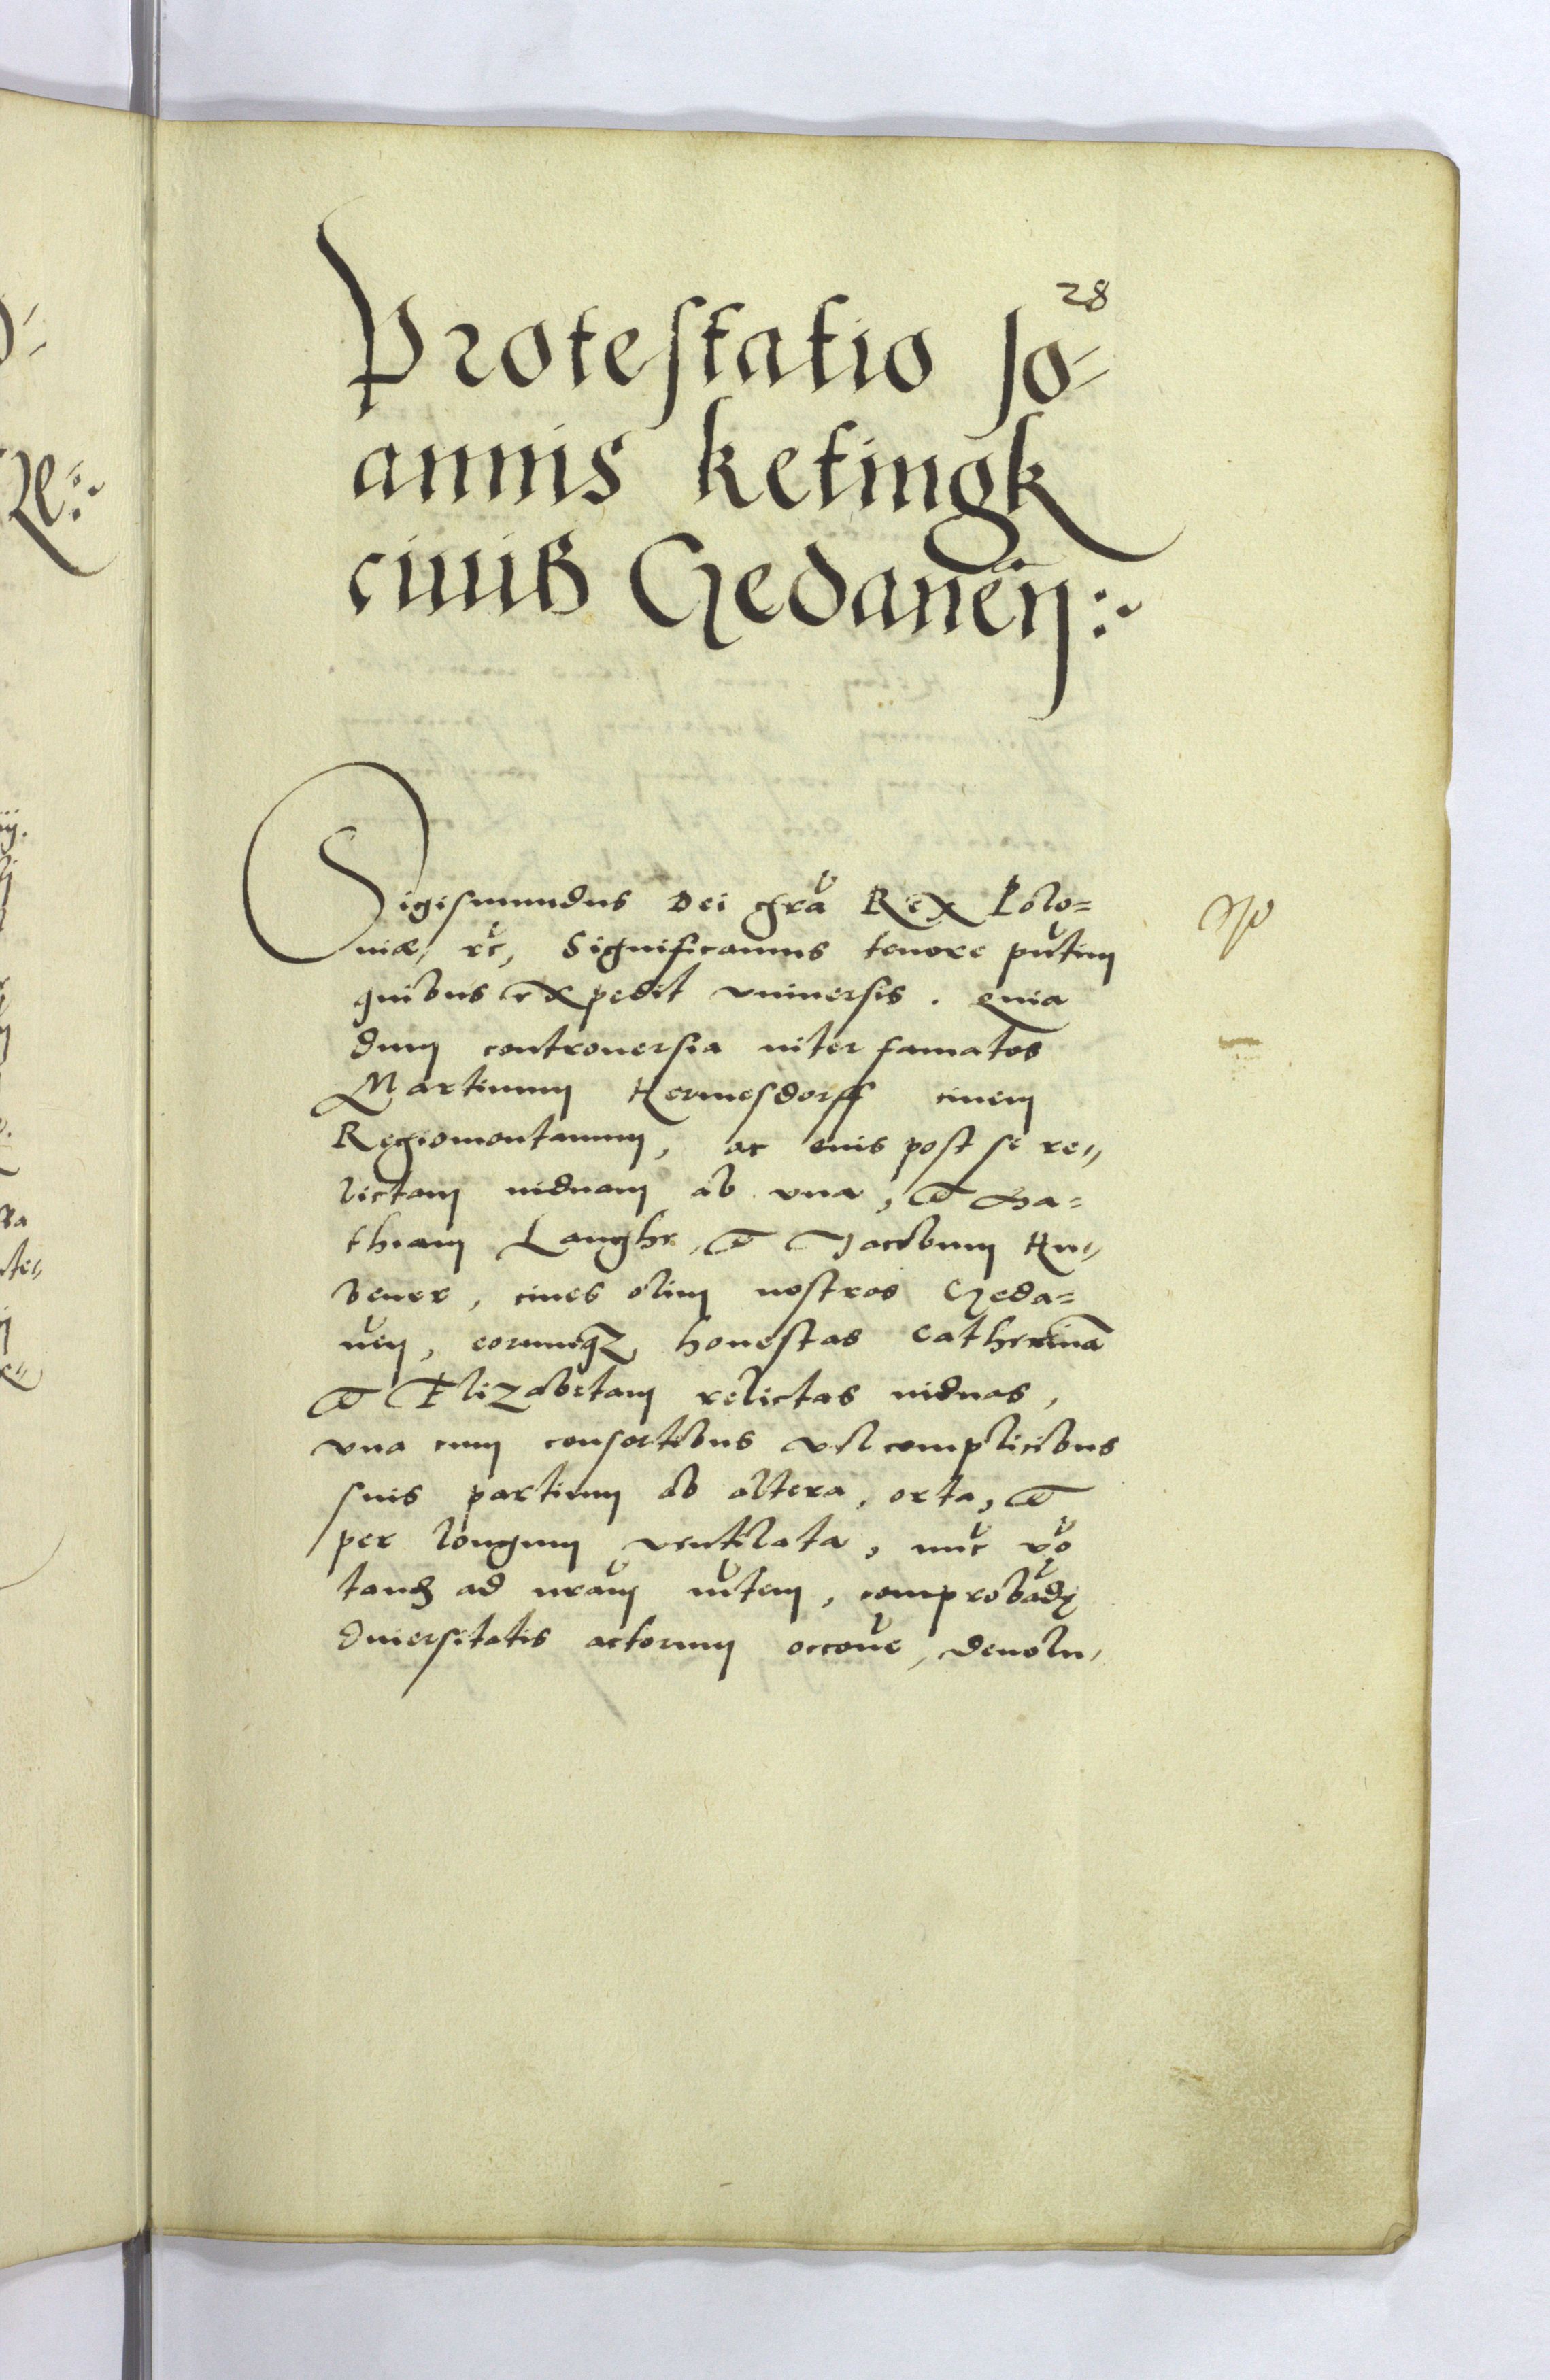 28
Protestatio Jo-
annis Ketingk
ciuiß Gedaneñ:
Sigismundus Dei gra Rex Polo=
niæ, rc, Significamus tenore pntium
quibus expedit vniuersis. Quia
dum controuersia inter famatos
Martinum Hermesdorff ciuem
Regiomontanum, ac eius post se re„
lictam uiduam ab vna, et Ma=
thiam Langhe, et Jacobum Hu„
bener, ciues olim nostros Geda=
nen, eorumqz honestas Catherina
et Elizabetam relictas uiduas,
vna cum consortibus vel complicibus
suis partium ab altera, orta, et
per longum ventilata, nuc vo
tand ad nram mtem, comprobadę
diuersitatis actorum occone, deuolu,